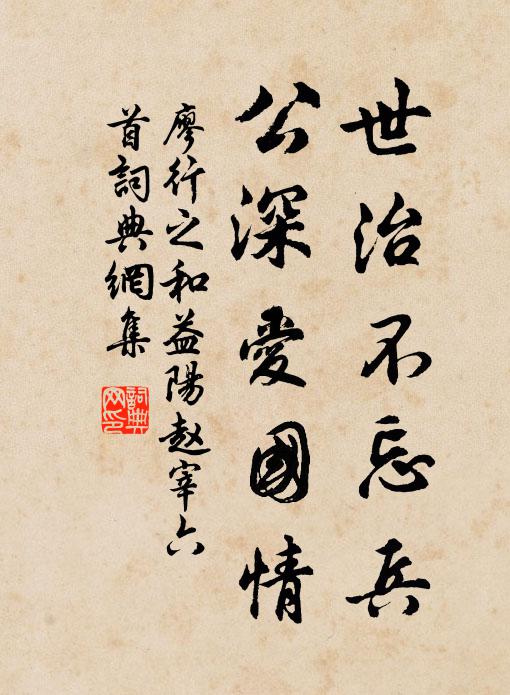 世治不忘兵
公深愛國情
廖行之和益陽赵宰六
首詞典網集
詞典
网印